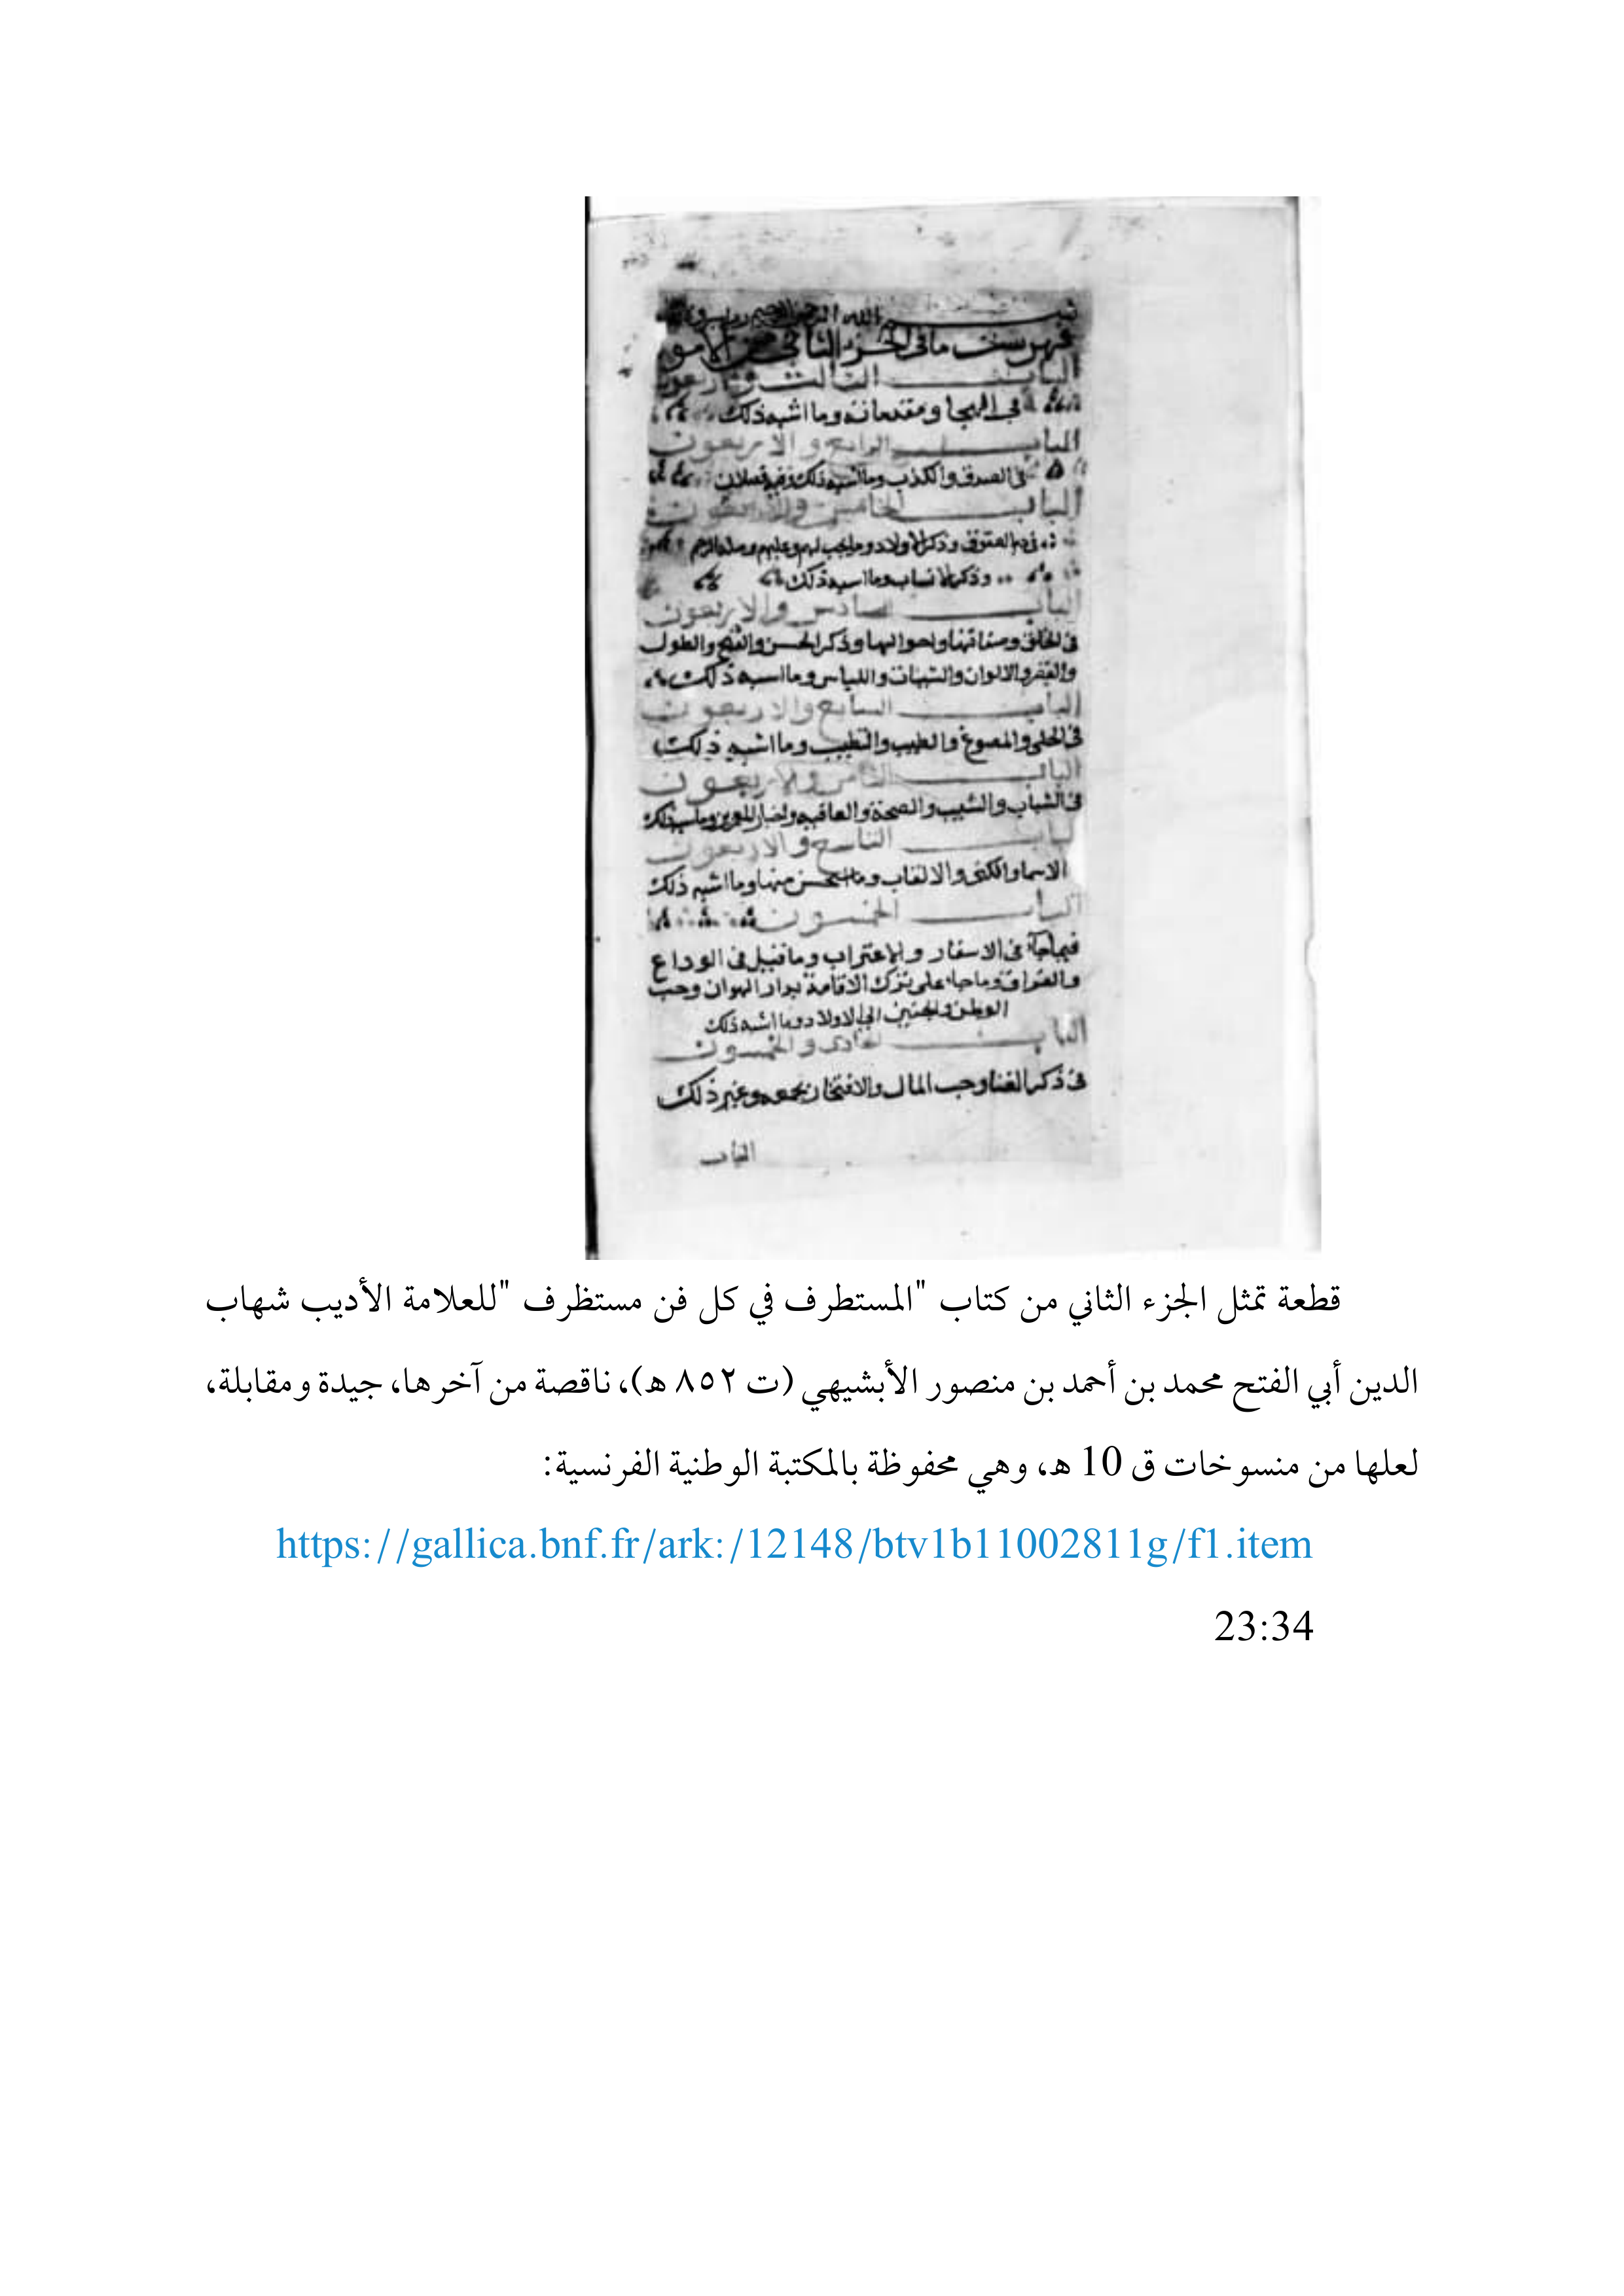 الباب الثالث
في الهجا ومقدماته وما اشبه ذلك
الباب الرابع والاربعون
في الصدق والكذب وما اشبه ذلك وفيه فصلان
الباب الخامس والاربعون
وذكر الاولاد وما يجب لهم وعليهم
وذكر الانساب وما اشبه ذلك
الباب السادس والاربعون
في الخلق وصفاتها واحوالها وذكر الحسن والقبح والطول
والقصر والالوان والثياب واللباس وما اشبه ذلك
الباب السابع والاربعون
في الحلى والمصوغ والطيب والتطيب وما اشبه ذلك
الباب الثامن والاربعون
في الشباب والشيب والصحة والعافيه واخبار المعمرين وما اشبه ذلك
الباب التاسع والاربعون
الاسما والكنى والالقاب وما استحسن منها وما اشبه ذلك
الباب الخمسون
فيما جآء في الاسفار والاغتراب وما قيل في الوداع
والفراق وما جاء على ترك الاقامة بدار الهوان وحب
الوطن والحنين الى الاولاد وما اشبه ذلك
الباب الحادى والخمسون
في ذكر الغنا وحب المال والافتخار بجمعه وغير ذلك
الباب
قطعة تمثل الجزء الثاني من كتاب "المستطرف في كل فن مستظرف "للعلامة الأديب شهاب
الدين أبي الفتح محمد بن أحمد بن منصور الأبشيهي (ت ٨٥٢ هـ)، ناقصة من آخرها، جيدة ومقابلة،
لعلها من منسوخات ق 10 هـ، وهي محفوظة بالمكتبة الوطنية الفرنسية:
https://gallica.bnf.fr/ark:/12148/btv1b11002811g/f1.item
23:34